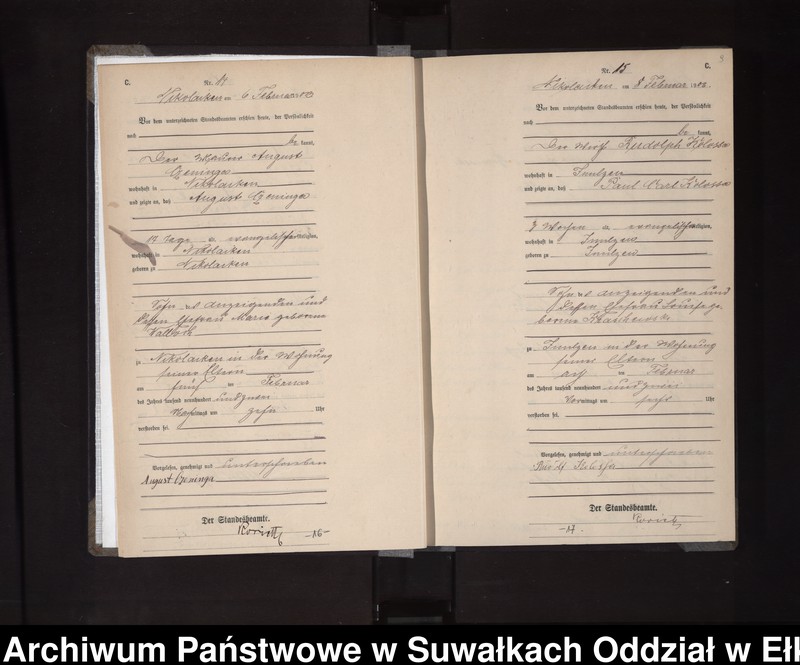 C.
Nr. 11
Nikolaiken am 6 Februar 1902
Vor dem unterzeichneten Standesbeamten erschien heute, der Persönlichkeit
nach
be kannt,
Der August
Czeninga
wohnhaft in Nikolaiken
und zeigte an, daß August Czeninga
17 Tage a. evangelischer Religion,
wohnhaft in Nikolaiken
geboren zu Nikolaiken
Sohn des Anzeigenden und
dessen Ehefrau Maria geborene
zu Nikolaiken in der Wohnung
seiner Eltern
am fünf ten Februar
des Jahres tausend neunhundert und zwei
mittags um zehn Uhr
verstorben sei.
Vorgelesen, genehmigt und unterschrieben
August Czeninga
Der Standesbeamte.
-16-
9
C.
Nr. 15
Nikolaiken am 8 Februar 1902
Vor dem unterzeichneten Standesbeamten erschien heute, der Persönlichkeit
nach
be kannt,
Der Wirth Rudolph Kolossa
wohnhaft in
und zeigte an, daß Paul Karl Kolossa
Wochen a. evangelischer Religion,
wohnhaft in
geboren zu
Sohn des Anzeigenden und
dessen Ehefrau Louise ge-
borene
zu in der Wohnung
seiner Eltern
am acht ten Februar
des Jahres tausend neunhundert und zwei
Vormittags um Uhr
verstorben sei.
Vorgelesen, genehmigt und unterschrieben
Der Standesbeamte.
-17-
Archiwum Państwowe w Suwałkach Oddział w Ełk